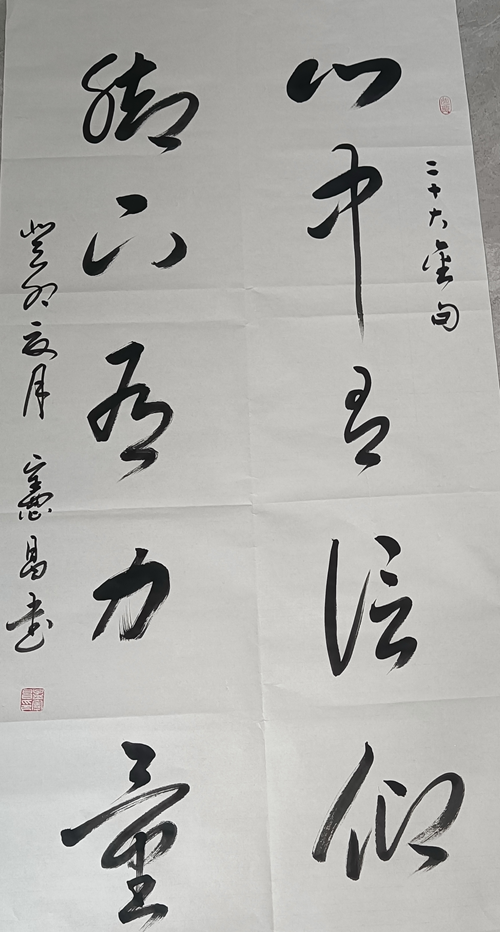 二十大金句
心中有信仰
脚下有力量
癸卯夏月 宪昌书